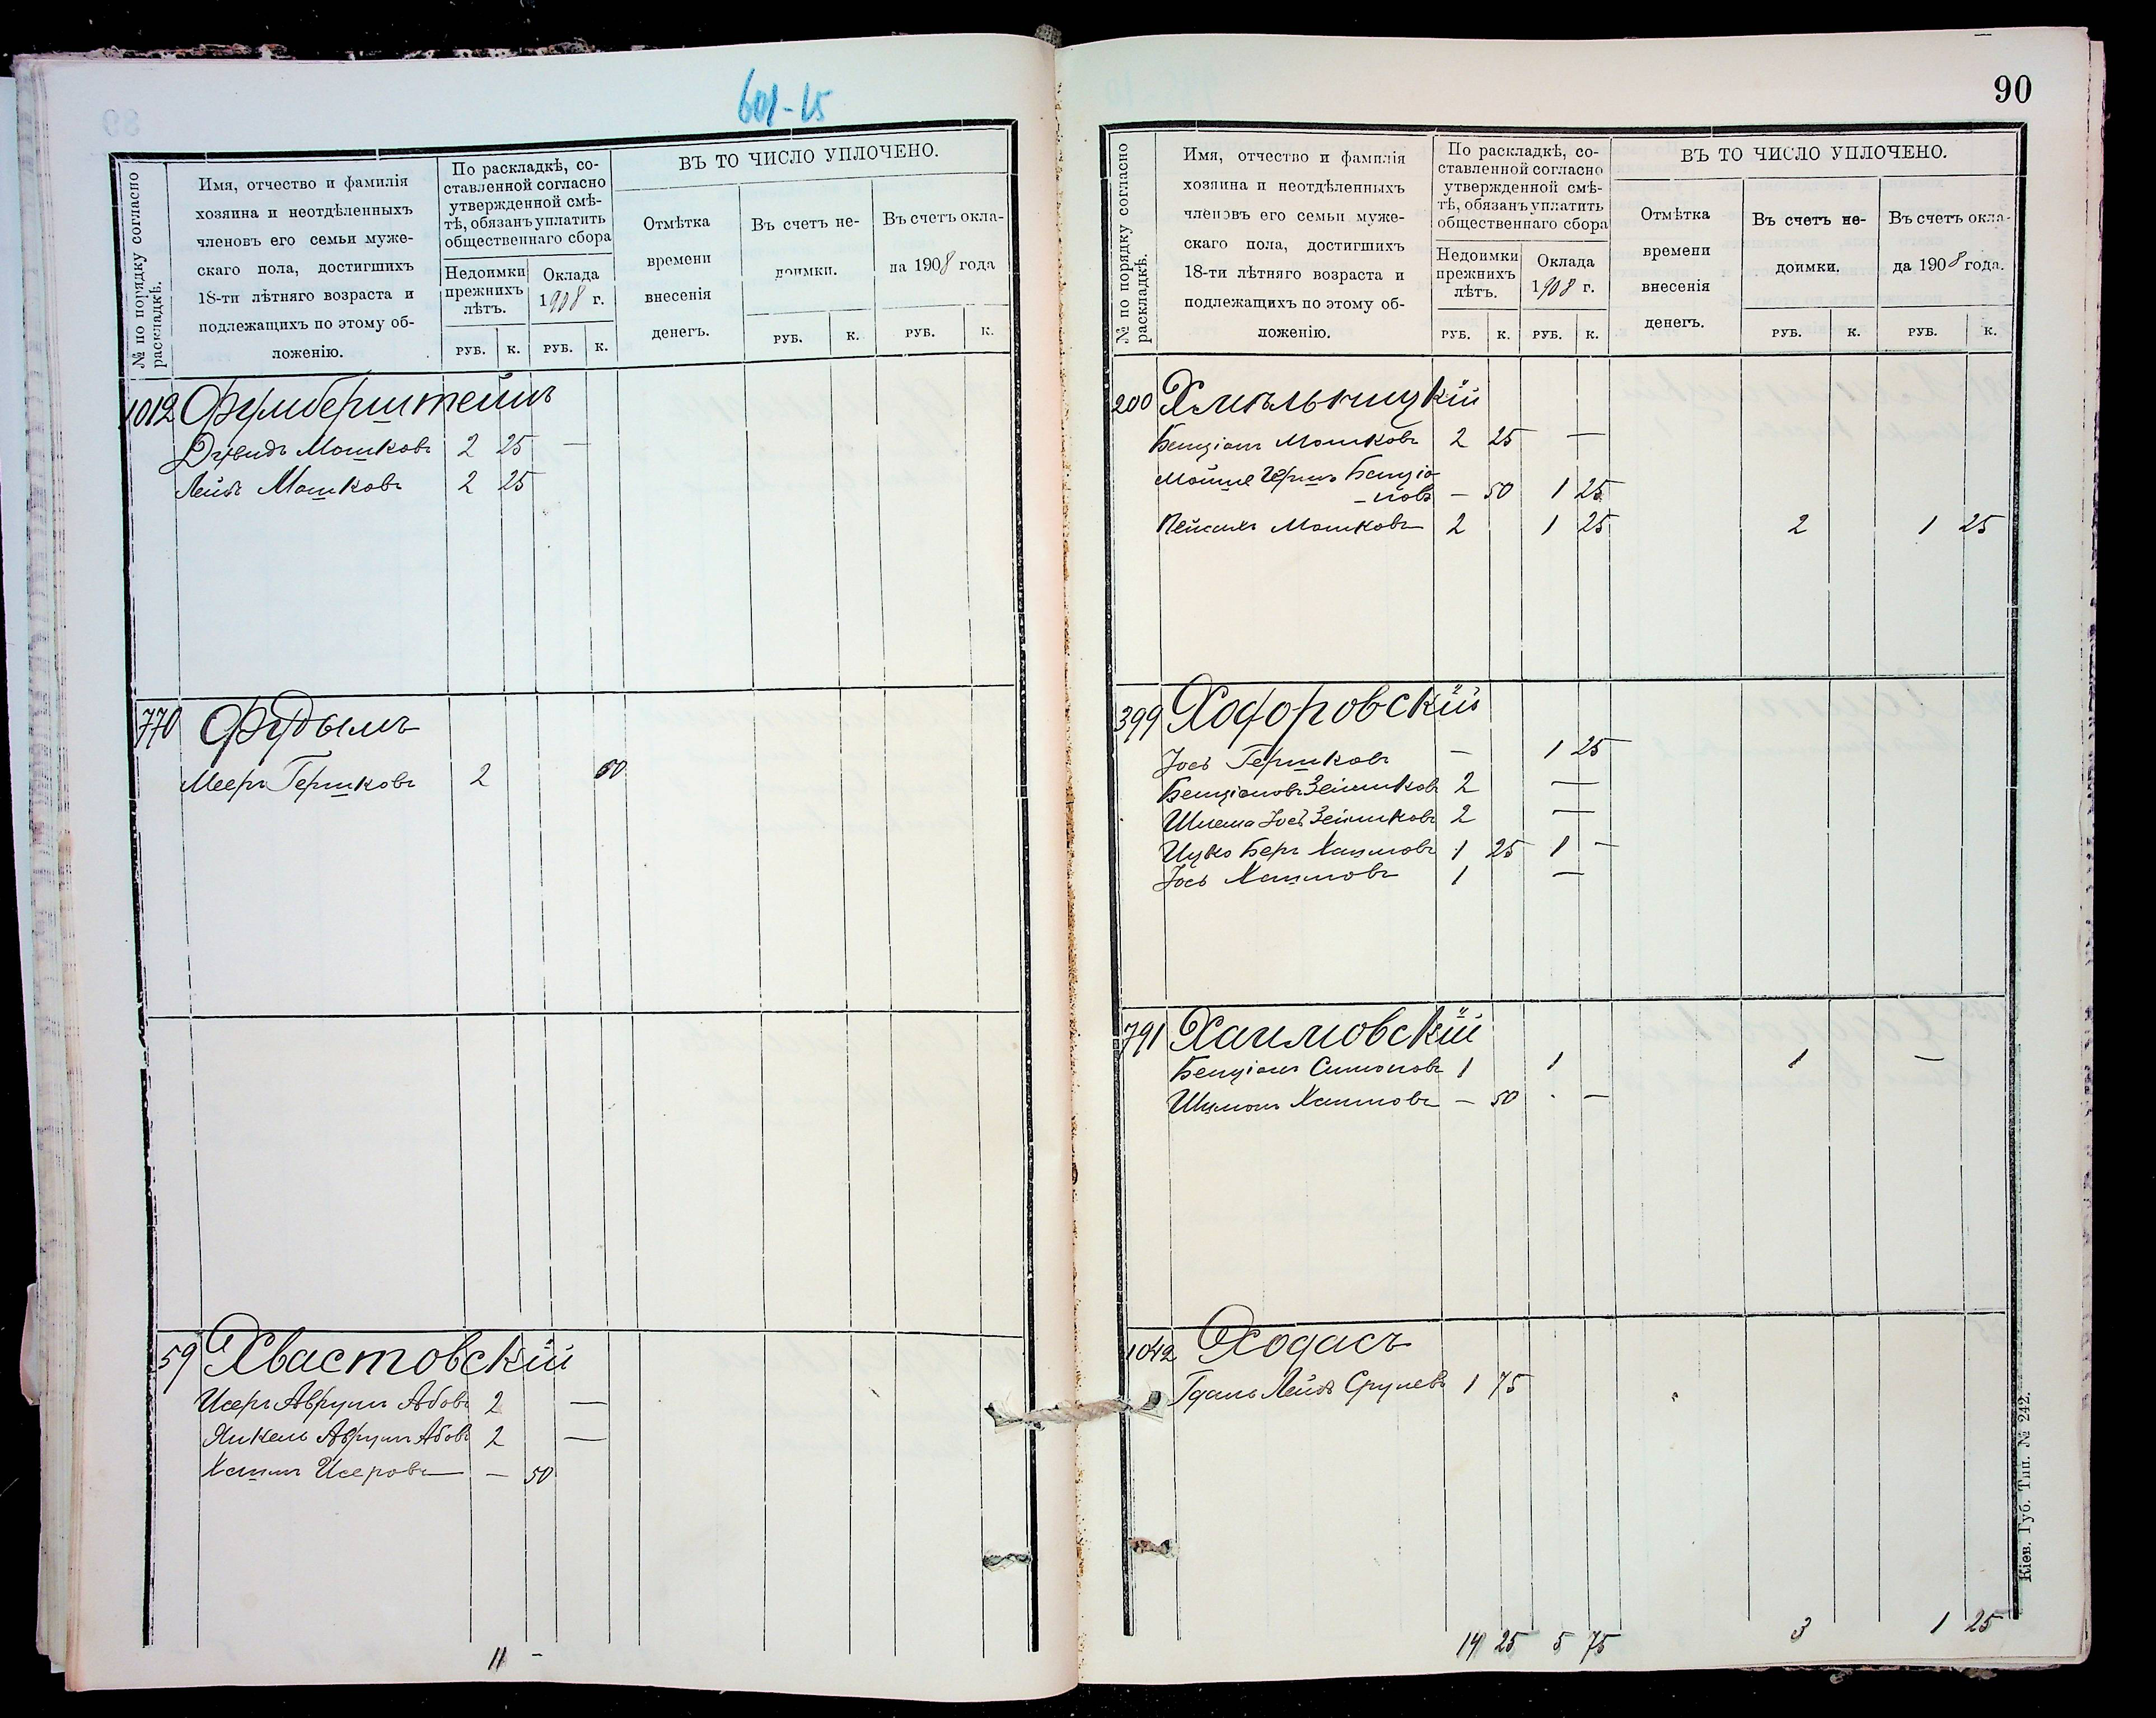 601-15
№ по порядку согласно раскладкѣ.
Имя, отчество и фамилія
хозяина и неотдѣленныхъ
членовъ его семьи муже-
скаго пола, достигшихъ
18-ти лѣтняго возраста и
подлежащихъ по этому об-
ложенію.
По раскладкѣ, со-
ставленной согласно
утвержденной смѣ-
тѣ, обязанъ уплатить
общественнаго сбора
Недоимки
прежнихъ
лѣтъ.
Оклада
1908 г.
РУБ. К. РУБ. К.
ВЪ ТО ЧИСЛО УПЛОЧЕНО.
Отмѣтка
времени
внесенія
денегъ.
Въ счетъ не-
доимки.
Въ счетъ окла-
да 1908 года
РУБ. К. РУБ. К.
1012
Давидъ Мошковъ 2 25 —
Лейбъ Мошковъ 2 25
770 Фудымъ
Мееръ Гершковъ 2 50
59 Хвастовскій
Исеръ Аврумъ Абовъ 2 —
Янкель Аврумъ Абовъ 2 —
Хаимъ Исеровъ — 50
11 -
90
№ по порядку согласно раскладкѣ.
Имя, отчество и фамилія
хозяина и неотдѣленныхъ
членовъ его семьи муже-
скаго пола, достигшихъ
18-ти лѣтняго возраста и
подлежащихъ по этому об-
ложенію.
По раскладкѣ, со-
ставленной согласно
утвержденной смѣ-
тѣ, обязанъ уплатить
общественнаго сбора
Недоимки
прежнихъ
лѣтъ.
Оклада
1908 г.
РУБ. К. РУБ. К.
ВЪ ТО ЧИСЛО УПЛОЧЕНО.
Отмѣтка
времени
внесенія
денегъ.
Въ счетъ не-
доимки.
Въ счетъ окла-
да 1908 года.
РУБ. К. РУБ. К.
200 Хмѣльницкій
Бенціонъ Мошковъ 2 25 —
Мойше Гершъ Бенціо-
-новъ — 50 1 25
Пейсахъ Мошковъ 2 1 25 2 1 25
399 Ходоровскій
Іосъ Гершковъ — 1 25
Бенціоновъ Зейликовъ 2 —
Шлема Іосъ Зейликовъ 2 —
Ицко Беръ Хаимовъ 1 25 1 -
Іосъ Хаимовъ 1 —
791 Хаимовскій
Бенціонъ Симоновъ 1 1 1 —
Шимонъ Хаимовъ — 50 . —
1042 Ходасъ
Гдаль Лейбъ Срулевъ 1 75
14 25 5 75 3 1 25
Кіев. Губ. Тип. № 242.